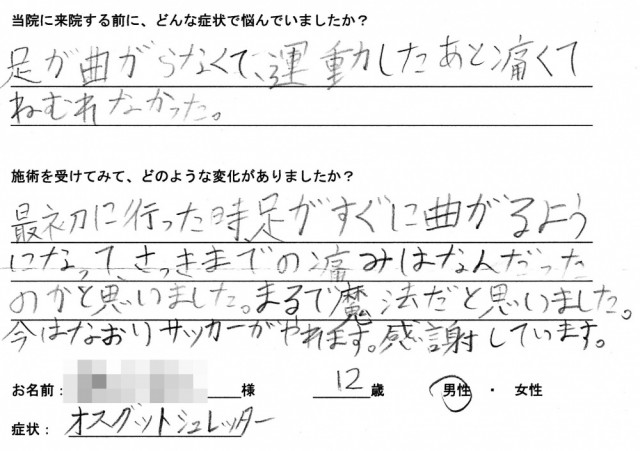 当院に来院する前に、どんな症状で悩んでいましたか？
足が曲がらなくて、運動したあと痛くて
ねむれなかった。
施術を受けてみて、どのような変化がありましたか？
最初に行った時足がすぐに曲がるよう
になって、さっきまでの痛みはなんだった
のかと思いました。まるで魔法だと思いました。
今はなおりサッカーがやれます。感謝しています。
お名前： 様 12歳 男性 ・ 女性
症状： オスグットシュレッター